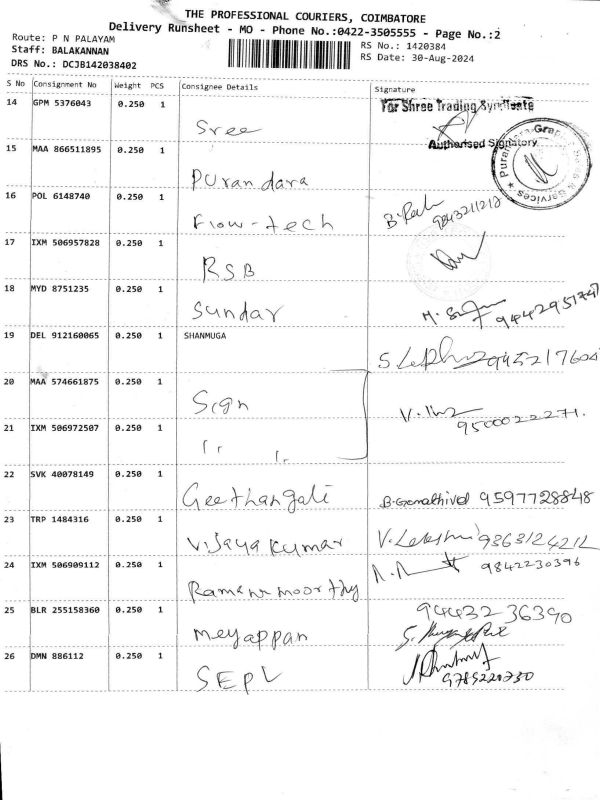 THE PROFESSIONAL COURIERS, COIMBATORE
Delivery Runsheet - MO - Phone No.:0422-3505555 - Page No.:2
Route: P N PALAYAM
RS No.: 1420384
Staff: BALAKANNAN
RS Date: 30-Aug-2024
DRS No.: DCJB142038402
S No Consignment No Weight PCS Consignee Details Signature
14 GPM 5376043 0.250 1 Sree For Shree Trading Syndicate
Authorised Signatory
15 MAA 866511895 0.250 1 Purandara
16 POL 6148740 0.250 1 Flow-tech 9843211212
17 IXM 506957828 0.250 1 RSB
18 MYD 8751235 0.250 1 Sundar 9442951747
19 DEL 912160065 0.250 1 SHANMUGA
20 MAA 574661875 0.250 1 Sign 9500022271.
21 IXM 506972507 0.250 1
22 SVK 40078149 0.250 1 Geethangali B.Gomathivel 9597728848
23 TRP 1484316 0.250 1 Vijaya Kumar V. Lekshmi 9363124212
24 IXM 506909112 0.250 1 Ramanamoorthy 9842230396
25 BLR 255158360 0.250 1 Meyappan 9443236390
26 DMN 886112 0.250 1 SEPL 9789220730